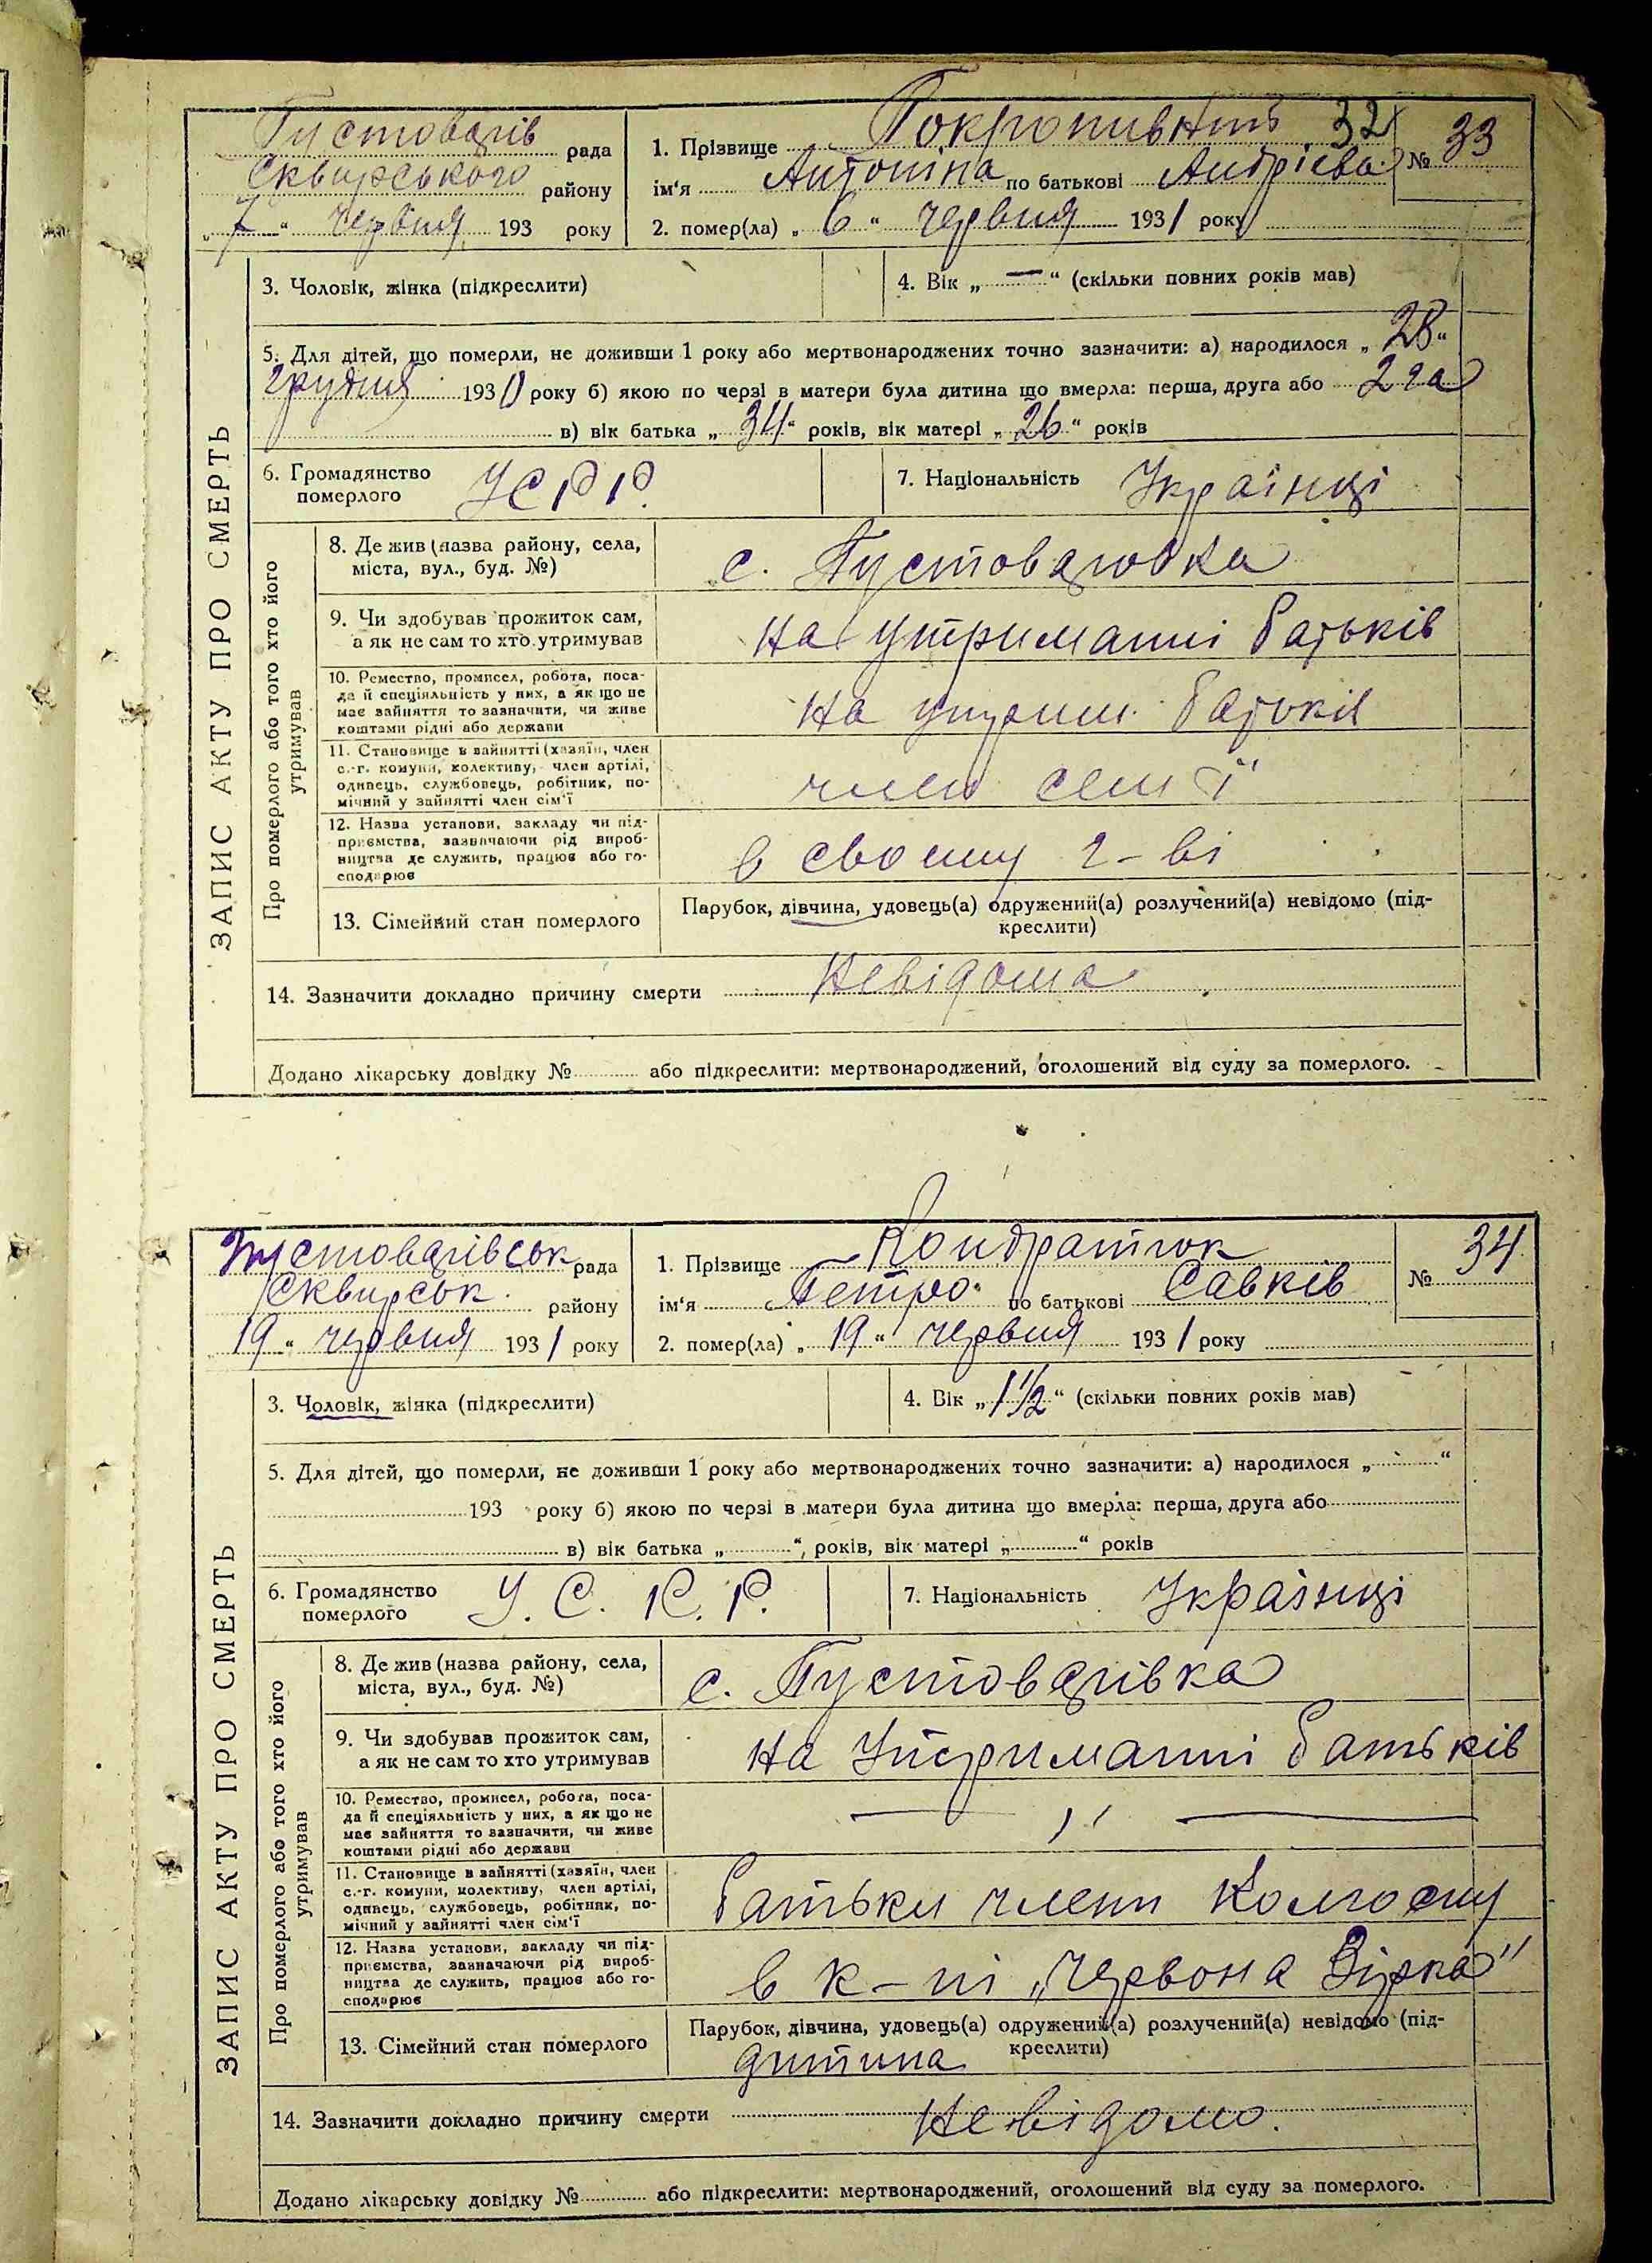 ЗАПИС АКТУ ПРО СМЕРТЬ
Пустоварів рада
Сквирського району
„ 7 “ червня 193 року
1. Прізвище 32
№ 33
ім‘я Антоніна по батькові Андрієва
2. помер(ла) „ 6 “ червня 1931 року
3. Чоловік, жінка (підкреслити)
4. Вік „ — “ (скільки повних років мав)
5. Для дітей, що померли, не доживши 1 року або мертвонароджених точно зазначити: а) народилося „ 28 “
грудня 1930 року б) якою по черзі в матери була дитина що вмерла: перша, друга або 2га
в) вік батька „ 34 “ років, вік матері „ 26 “ років
6. Громадянство
померлого
УСРР.
7. Національність Українці
Про померлого або того хто його
утримував
8. Де жив (назва району, села,
міста, вул., буд. №)
с. Пустоваровка
9. Чи здобував прожиток сам,
а як не сам то хто утримував
на утриманні батьків
10. Ремество, промисел, робота, поса-
да й спеціяльність у них, а як що не
має зайняття то зазначити, чи живе
коштами рідні або держави
на утрим. батьків
11. Становище в зайнятті (хазяїн, член
с.-г. комуни, колективу, член артілі,
одинець, службовець, робітник, по-
мічний у зайнятті член сім‘ї
член сем ї
12. Назва установи, закладу чи під-
приємства, зазначаючи рід вироб-
ництва де служить, працює або го-
сподарює
в своєму г-ві
13. Сімейний стан померлого
Парубок, дівчина, удовець(а) одружений(а) розлучений(а) невідомо (під-
креслити)
14. Зазначити докладно причину смерти невідома
Додано лікарську довідку № або підкреслити: мертвонароджений, оголошений від суду за померлого.
ЗАПИС АКТУ ПРО СМЕРТЬ
Пустоварівськ рада
Сквирськ. району
19 “ червня 1931 року
1. Прізвище Кондратюк
№ 34
ім‘я Петро по батькові Савків
2. помер(ла) „ 19 “ червня 1931 року
3. Чоловік, жінка (підкреслити)
4. Вік „ 1 1/2 “ (скільки повних років мав)
5. Для дітей, що померли, не доживши 1 року або мертвонароджених точно зазначити: а) народилося „ “
193 року б) якою по черзі в матери була дитина що вмерла: перша, друга або
в) вік батька „ “, років, вік матері „ “ років
6. Громадянство
померлого
У. С. Р. Р.
7. Національність Українці
Про померлого або того хто його
утримував
8. Де жив (назва району, села,
міста, вул., буд. №)
с. Пустоварівка
9. Чи здобував прожиток сам,
а як не сам то хто утримував
на утриманні батьків
10. Ремество, промисел, робота, поса-
да й спеціяльність у них, а як що не
має зайняття то зазначити, чи живе
коштами рідні або держави
— ,, —
11. Становище в зайнятті (хазяїн, член
с.-г. комуни, колективу, член артілі,
одинець, службовець, робітник, по-
мічний у зайнятті член сім‘ї
батьки члени колгоспу
12. Назва установи, закладу чи під-
приємства, зазначаючи рід вироб-
ництва де служить, працює або го-
сподарює
в к-пі „Червона Зірка"
13. Сімейний стан померлого
Парубок, дівчина, удовець(а) одружений(а) розлучений(а) невідомо (під-
креслити)
дитина
14. Зазначити докладно причину смерти невідомо.
Додано лікарську довідку № або підкреслити: мертвонароджений, оголошений від суду за померлого.